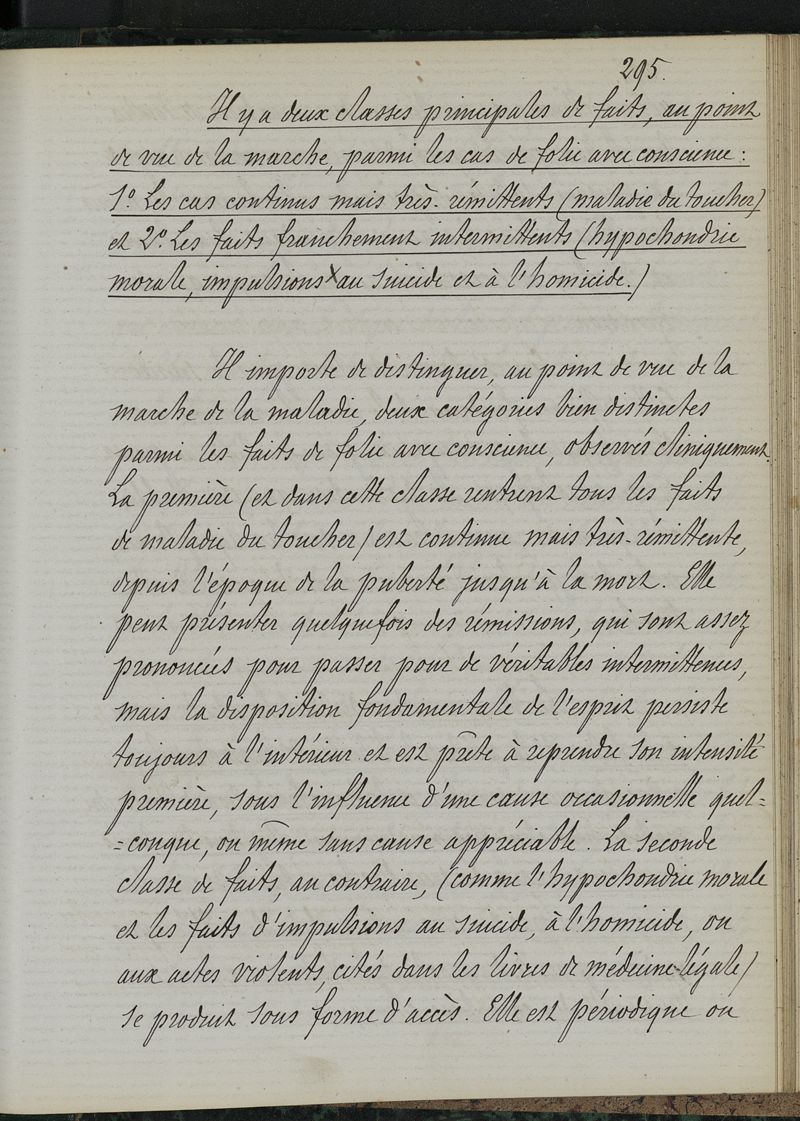 295.
Il y a deux classes principales de faits, au point
de vue de la marche, parmi les cas de folie avec conscience :
1º. Les cas continus mais très-rémittents (maladie du toucher)
et 2º. Les faits franchement intermittents (hypochondrie
morale, impulsions x au suicide et à l'homicide.)
Il importe de distinguer, au point de vue de la
marche de la maladie, deux catégories bien distinctes
parmi les faits de folie avec conscience, observés cliniquement.
La première (et dans cette classe rentrent tous les faits
de maladie du toucher) est continue mais très-rémittente,
depuis l'époque de la puberté jusqu'à la mort. Elle
peut présenter quelquefois des rémissions, qui sont assez
prononcées pour passer pour de véritables intermittences,
mais la disposition fondamentale de l'esprit persiste
toujours à l'intérieur et est prête à reprendre son intensité
première, sous l'influence d'une cause occasionnelle quel=
=conque, ou même sans cause appréciable. La seconde
classe de faits, au contraire, (comme l'hypochondrie morale
et les faits d'impulsions au suicide, à l'homicide, ou
aux actes violents, cités dans les livres de médecine-légale)
se produit sous forme d'accès. Elle est périodique ou